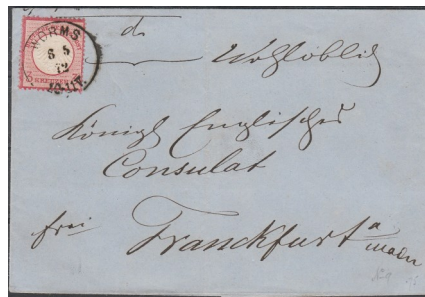 WORMS
6 5
72
KREUZER
d.
Wohlöblich
Königl Englisches
Consulat
frei
Franckfurt a
main